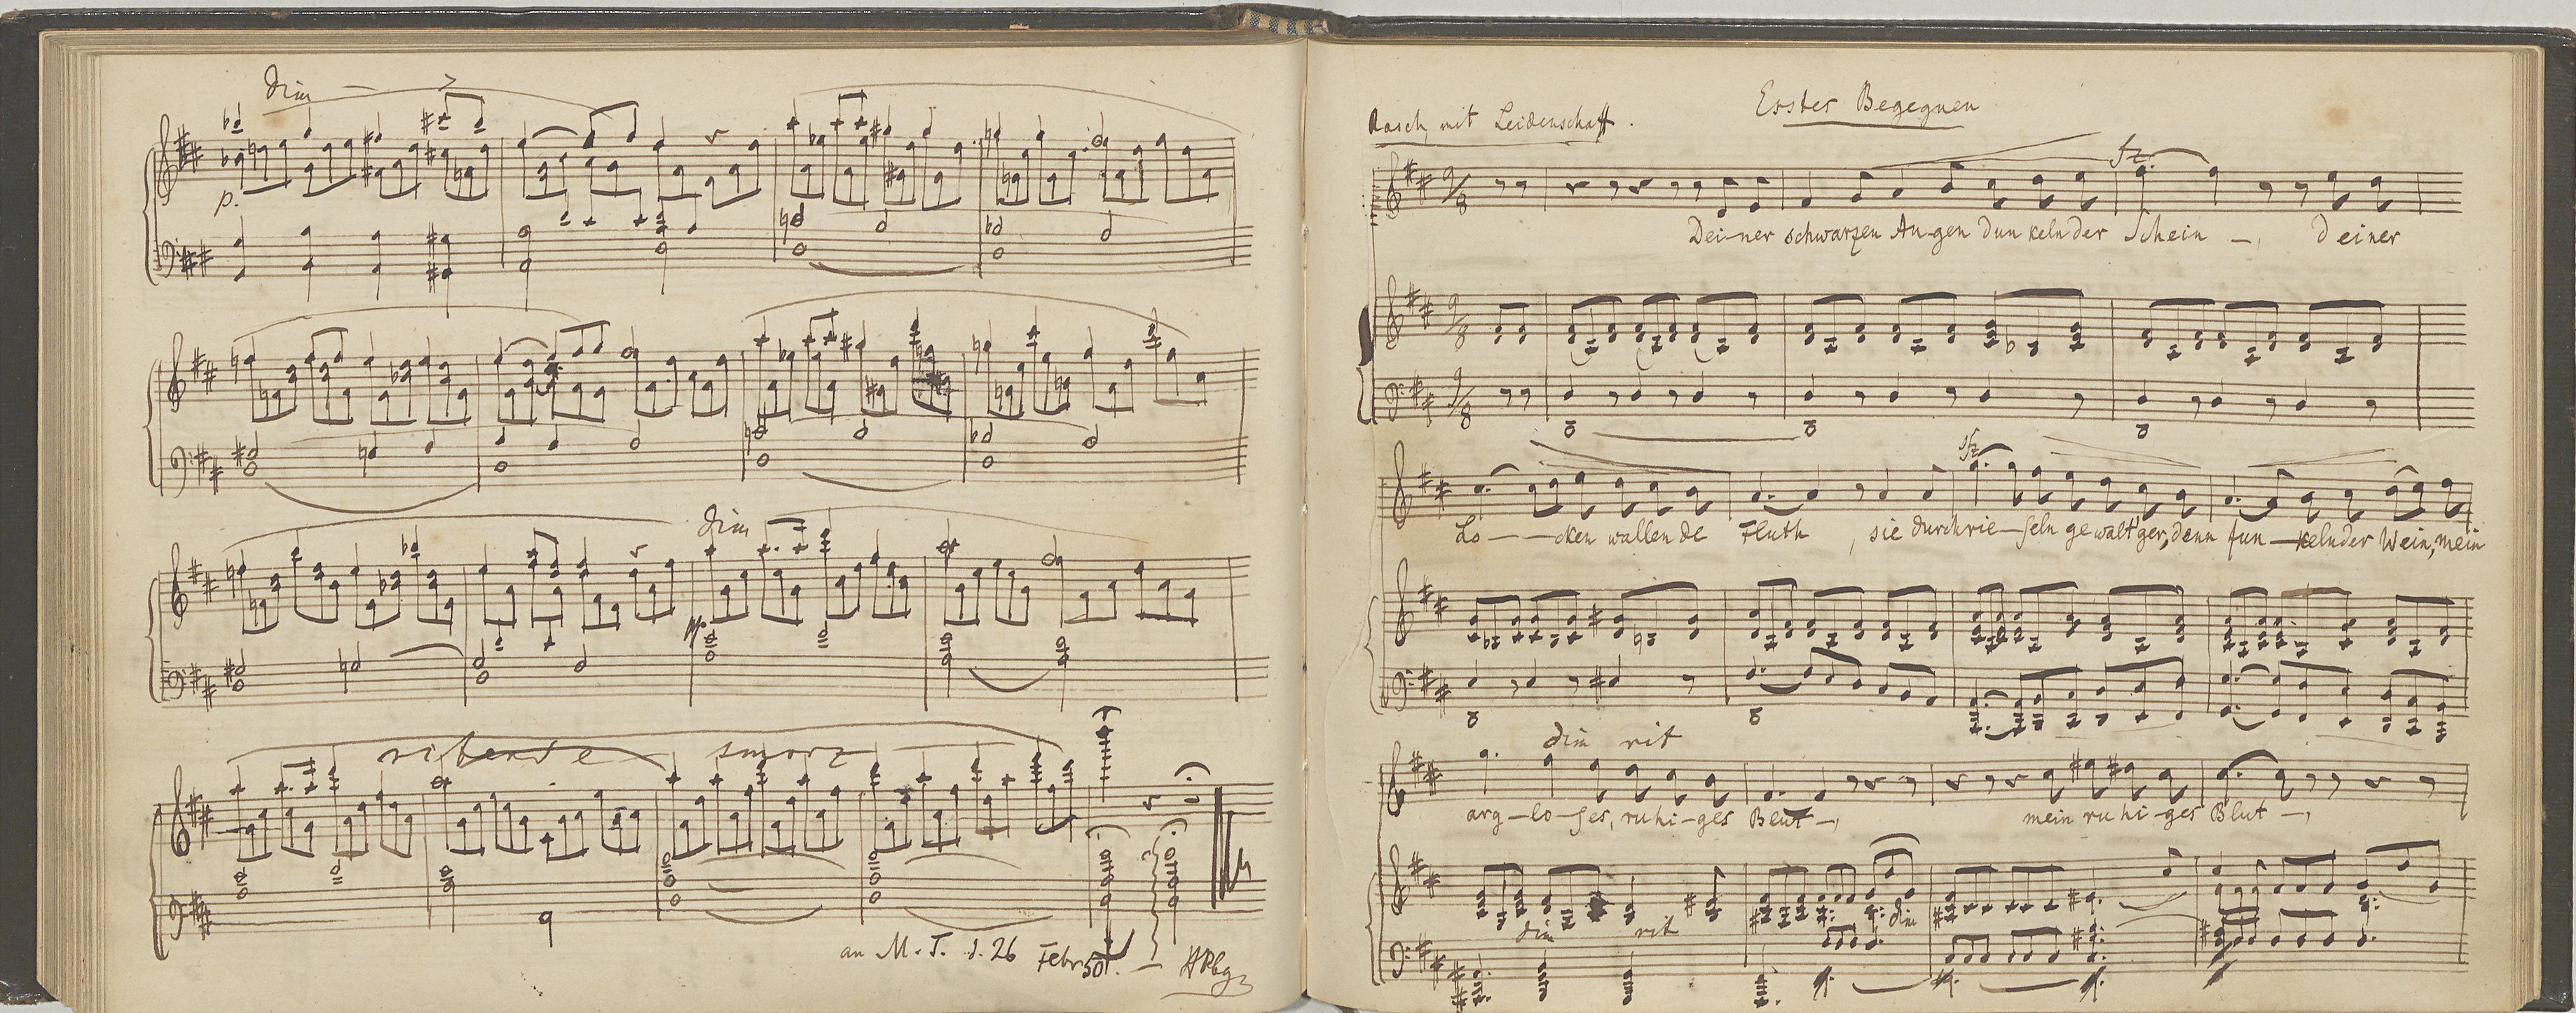 dim
p.
dim
pp
ritente smorz
an M. T. d. 26 Febr 50.
Erster Begegnen
Rasch, mit Leidenschaft.
9/8
fz
Dei-ner schwarzen Au-gen dunkelnder Schein -, deiner
9/8
9/8
sfz
Lo--cken wallende Fluth, sie durchrie-seln gewalt'ger, denn fun-kelnder Wein, mein
dim rit
arg-lo-ses, ruhi-ges Blut -, mein ruhi-ges Blut -,
dim rit dim